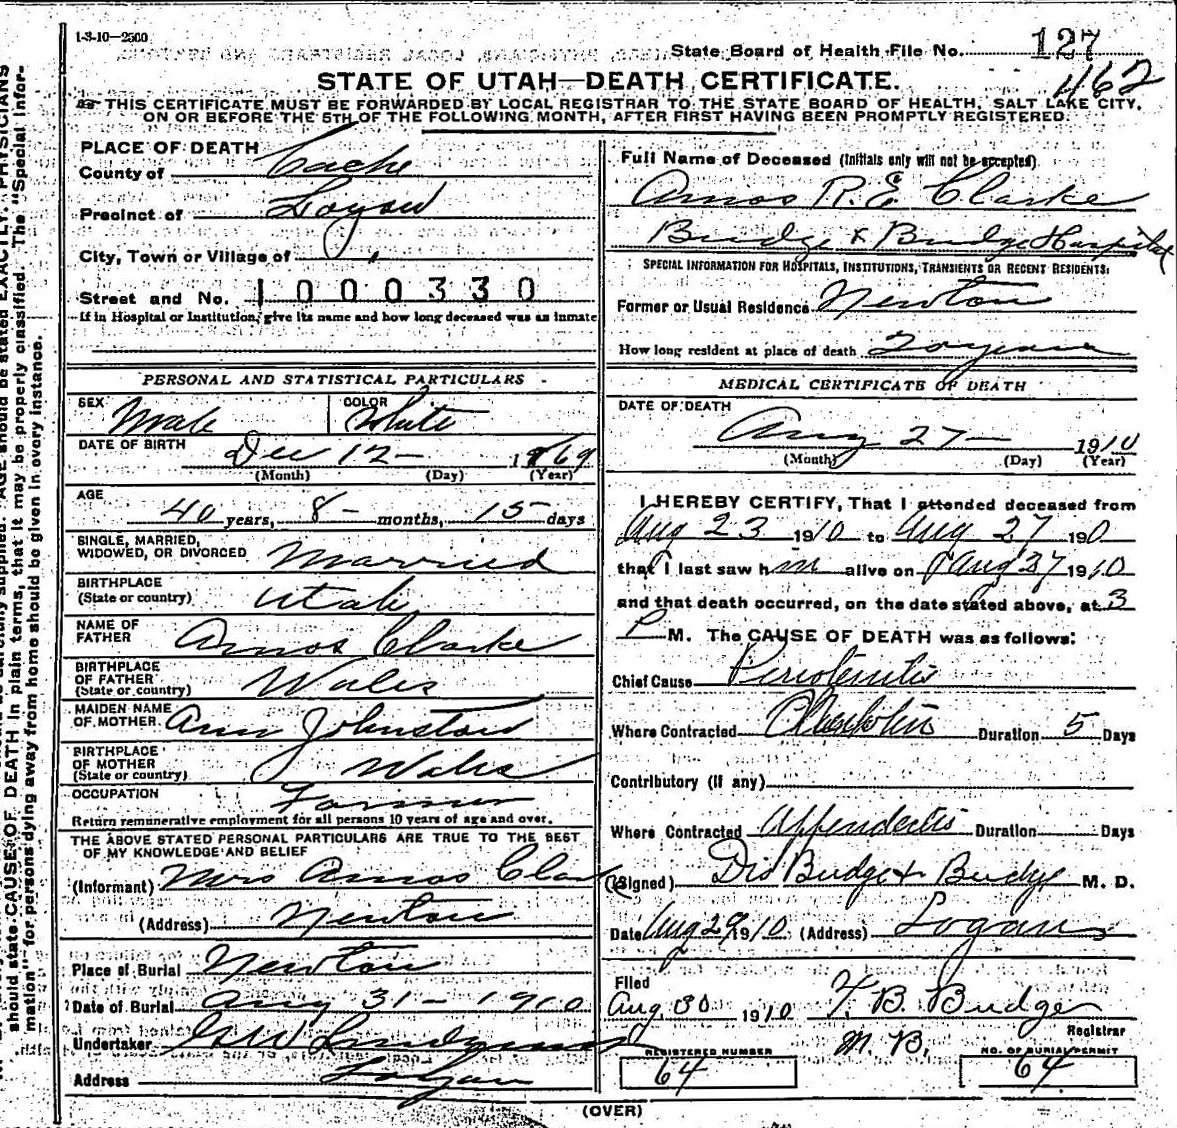 1-3-10—2500
State Board of Health File No. 127
462
STATE OF UTAH—DEATH CERTIFICATE.
THIS CERTIFICATE MUST BE FORWARDED BY LOCAL REGISTRAR TO THE STATE BOARD OF HEALTH, SALT LAKE CITY,
ON OR BEFORE THE 5TH OF THE FOLLOWING MONTH, AFTER FIRST HAVING BEEN PROMPTLY REGISTERED.
PLACE OF DEATH
County of Cache
Precinct of Logan
City, Town or Village of "
Street and No. 1000330
If in Hospital or Institution, give its name and how long deceased was an inmate
Full Name of Deceased (Initials only will not be accepted)
Amos R. E. Clarke
Budge & Budge Hospital
SPECIAL INFORMATION FOR HOSPITALS, INSTITUTIONS, TRANSIENTS OR RECENT RESIDENTS:
Former or Usual Residence Newton
How long resident at place of death 20 years
PERSONAL AND STATISTICAL PARTICULARS
SEX Male COLOR White
DATE OF BIRTH Dec 12 — 1869
(Month) (Day) (Year)
AGE
40 years, 8 — months, 15 days
SINGLE, MARRIED,
WIDOWED, OR DIVORCED Married
BIRTHPLACE
(State or country) Utah
NAME OF
FATHER Amos Clarke
BIRTHPLACE
OF FATHER
(State or country) Wales
MAIDEN NAME
OF MOTHER Ann Johnston
BIRTHPLACE
OF MOTHER
(State or country) Wales
OCCUPATION Farmer
Return remunerative employment for all persons 10 years of age and over.
THE ABOVE STATED PERSONAL PARTICULARS ARE TRUE TO THE BEST
OF MY KNOWLEDGE AND BELIEF
(Informant) Mrs Amos Clark
(Address) Newton
Place of Burial Newton
Date of Burial Aug 31 — 1910
Undertaker
Address Logan
MEDICAL CERTIFICATE OF DEATH
DATE OF DEATH
Aug 27 — 1910
(Month) (Day) (Year)
I HEREBY CERTIFY, That I attended deceased from
Aug 23 1910 to Aug 27 1910
that I last saw him alive on Aug 27 1910
and that death occurred, on the date stated above, at 3
P M. The CAUSE OF DEATH was as follows:
Chief Cause
Where Contracted Duration 5 Days
Contributory (if any)
Where Contracted Duration Days
(Signed) Drs Budge & Budge M. D.
Date Aug 29 1910 (Address) Logan
Filed
Aug 30 1910 T. B. Budge
Registrar
M. B.
REGISTERED NUMBER
64
NO. OF BURIAL PERMIT
64
(OVER)
should state CAUSE OF DEATH in plain terms, that it may be properly classified. The "Special Infor-
mation" for persons dying away from home should be given in every instance.